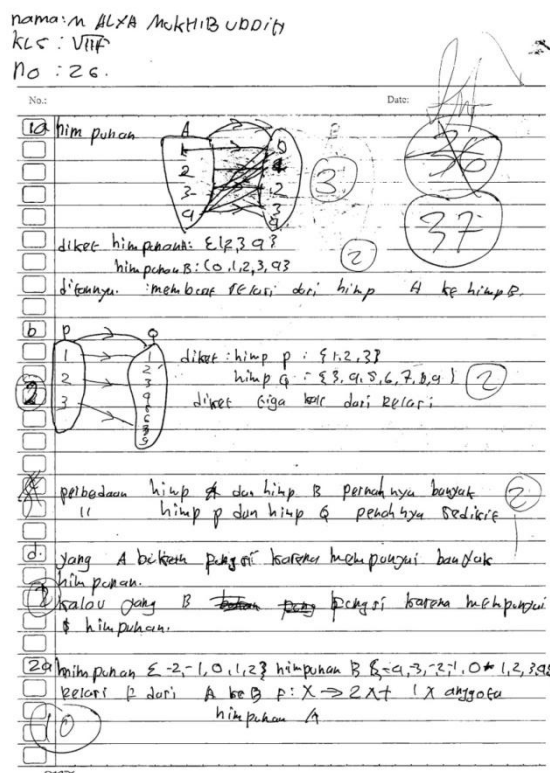 nama: M ALXA MUKHIBUDDIN
KLS : VIIF
no : 26.
No.:
Date:
36
37
1a himpunan
A
1 2 3 4
0 1 2 3 4
3
diket himpunan A: {1,2,3,4}
himpunan B: {0,1,2,3,4}
2
ditannya : membuat relasi dari himp A ke himp B.
b
P
Q
1 2 3
1 2 3 4
diket : himp p : {1,2,3}
himp Q : {3,4,5,6,7,8,9}
2
diket tiga kali dari relasi
2
perbedaan himp A dan himp B banyak
2
" himp p dan himp Q sedikit
d. yang A karena mempunyai banyak
himpunan.
kalau yang B karena mempunyai
himpunan.
2a himpunan {-2,-1,0,1,2} himpunan B {-4,-3,-2,-1,0,1,2,3,4}
relasi dari A ke B F: X → 2X+1 X anggota
himpunan A
10